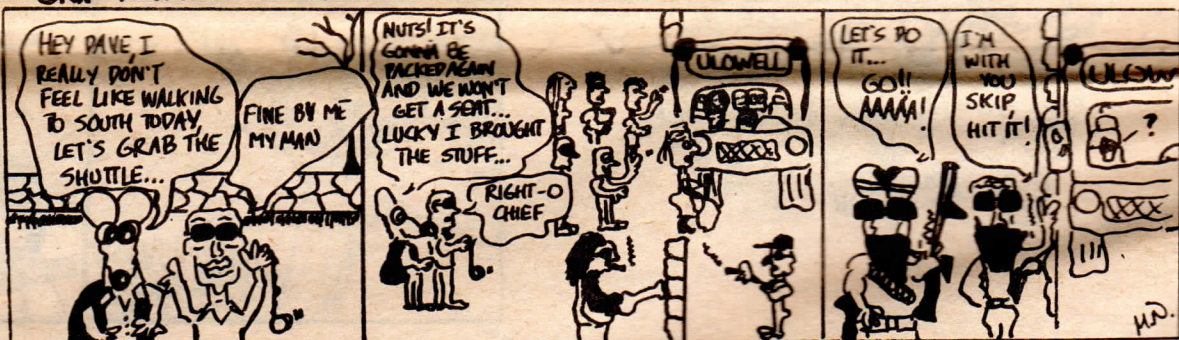 HEY DAVE, I
REALLY DON'T
FEEL LIKE WALKING
TO SOUTH TODAY,
LET'S GRAB THE
SHUTTLE...
FINE BY ME
MY MAN
NUTS! IT'S
GONNA BE
PACKED AGAIN
AND WE WON'T
GET A SEAT...
LUCKY I BROUGHT
THE STUFF...
RIGHT-O
CHIEF
ULOWELL
LET'S DO
IT...
GO!!
AAAAA!
I'M
WITH
YOU
SKIP,
HIT IT!
ULOW
?
M.N.